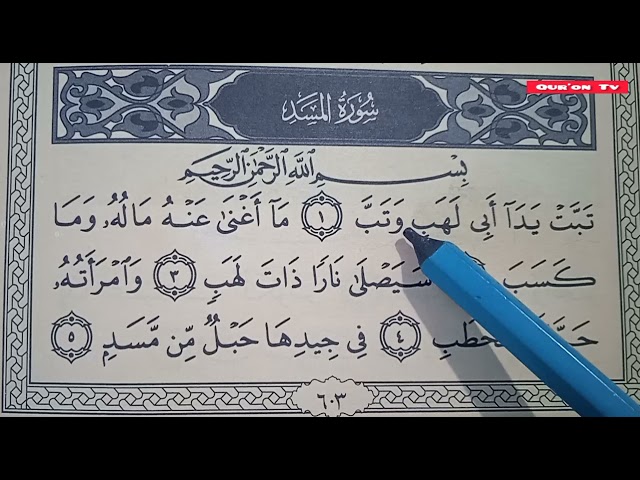 Qur'on Tv
سُورَةُ المَسَدِ
بِسْمِ ٱللَّهِ ٱلرَّحْمَٰنِ ٱلرَّحِيمِ
تَبَّتْ يَدَآ أَبِى لَهَبٍ وَتَبَّ ١ مَآ أَغْنَىٰ عَنْهُ مَالُهُۥ وَمَا
كَسَبَ سَيَصْلَىٰ نَارًا ذَاتَ لَهَبٍ ٣ وَٱمْرَأَتُهُۥ
٤ فِى جِيدِهَا حَبْلٌ مِّن مَّسَدٍۭ ٥
٦٠٣